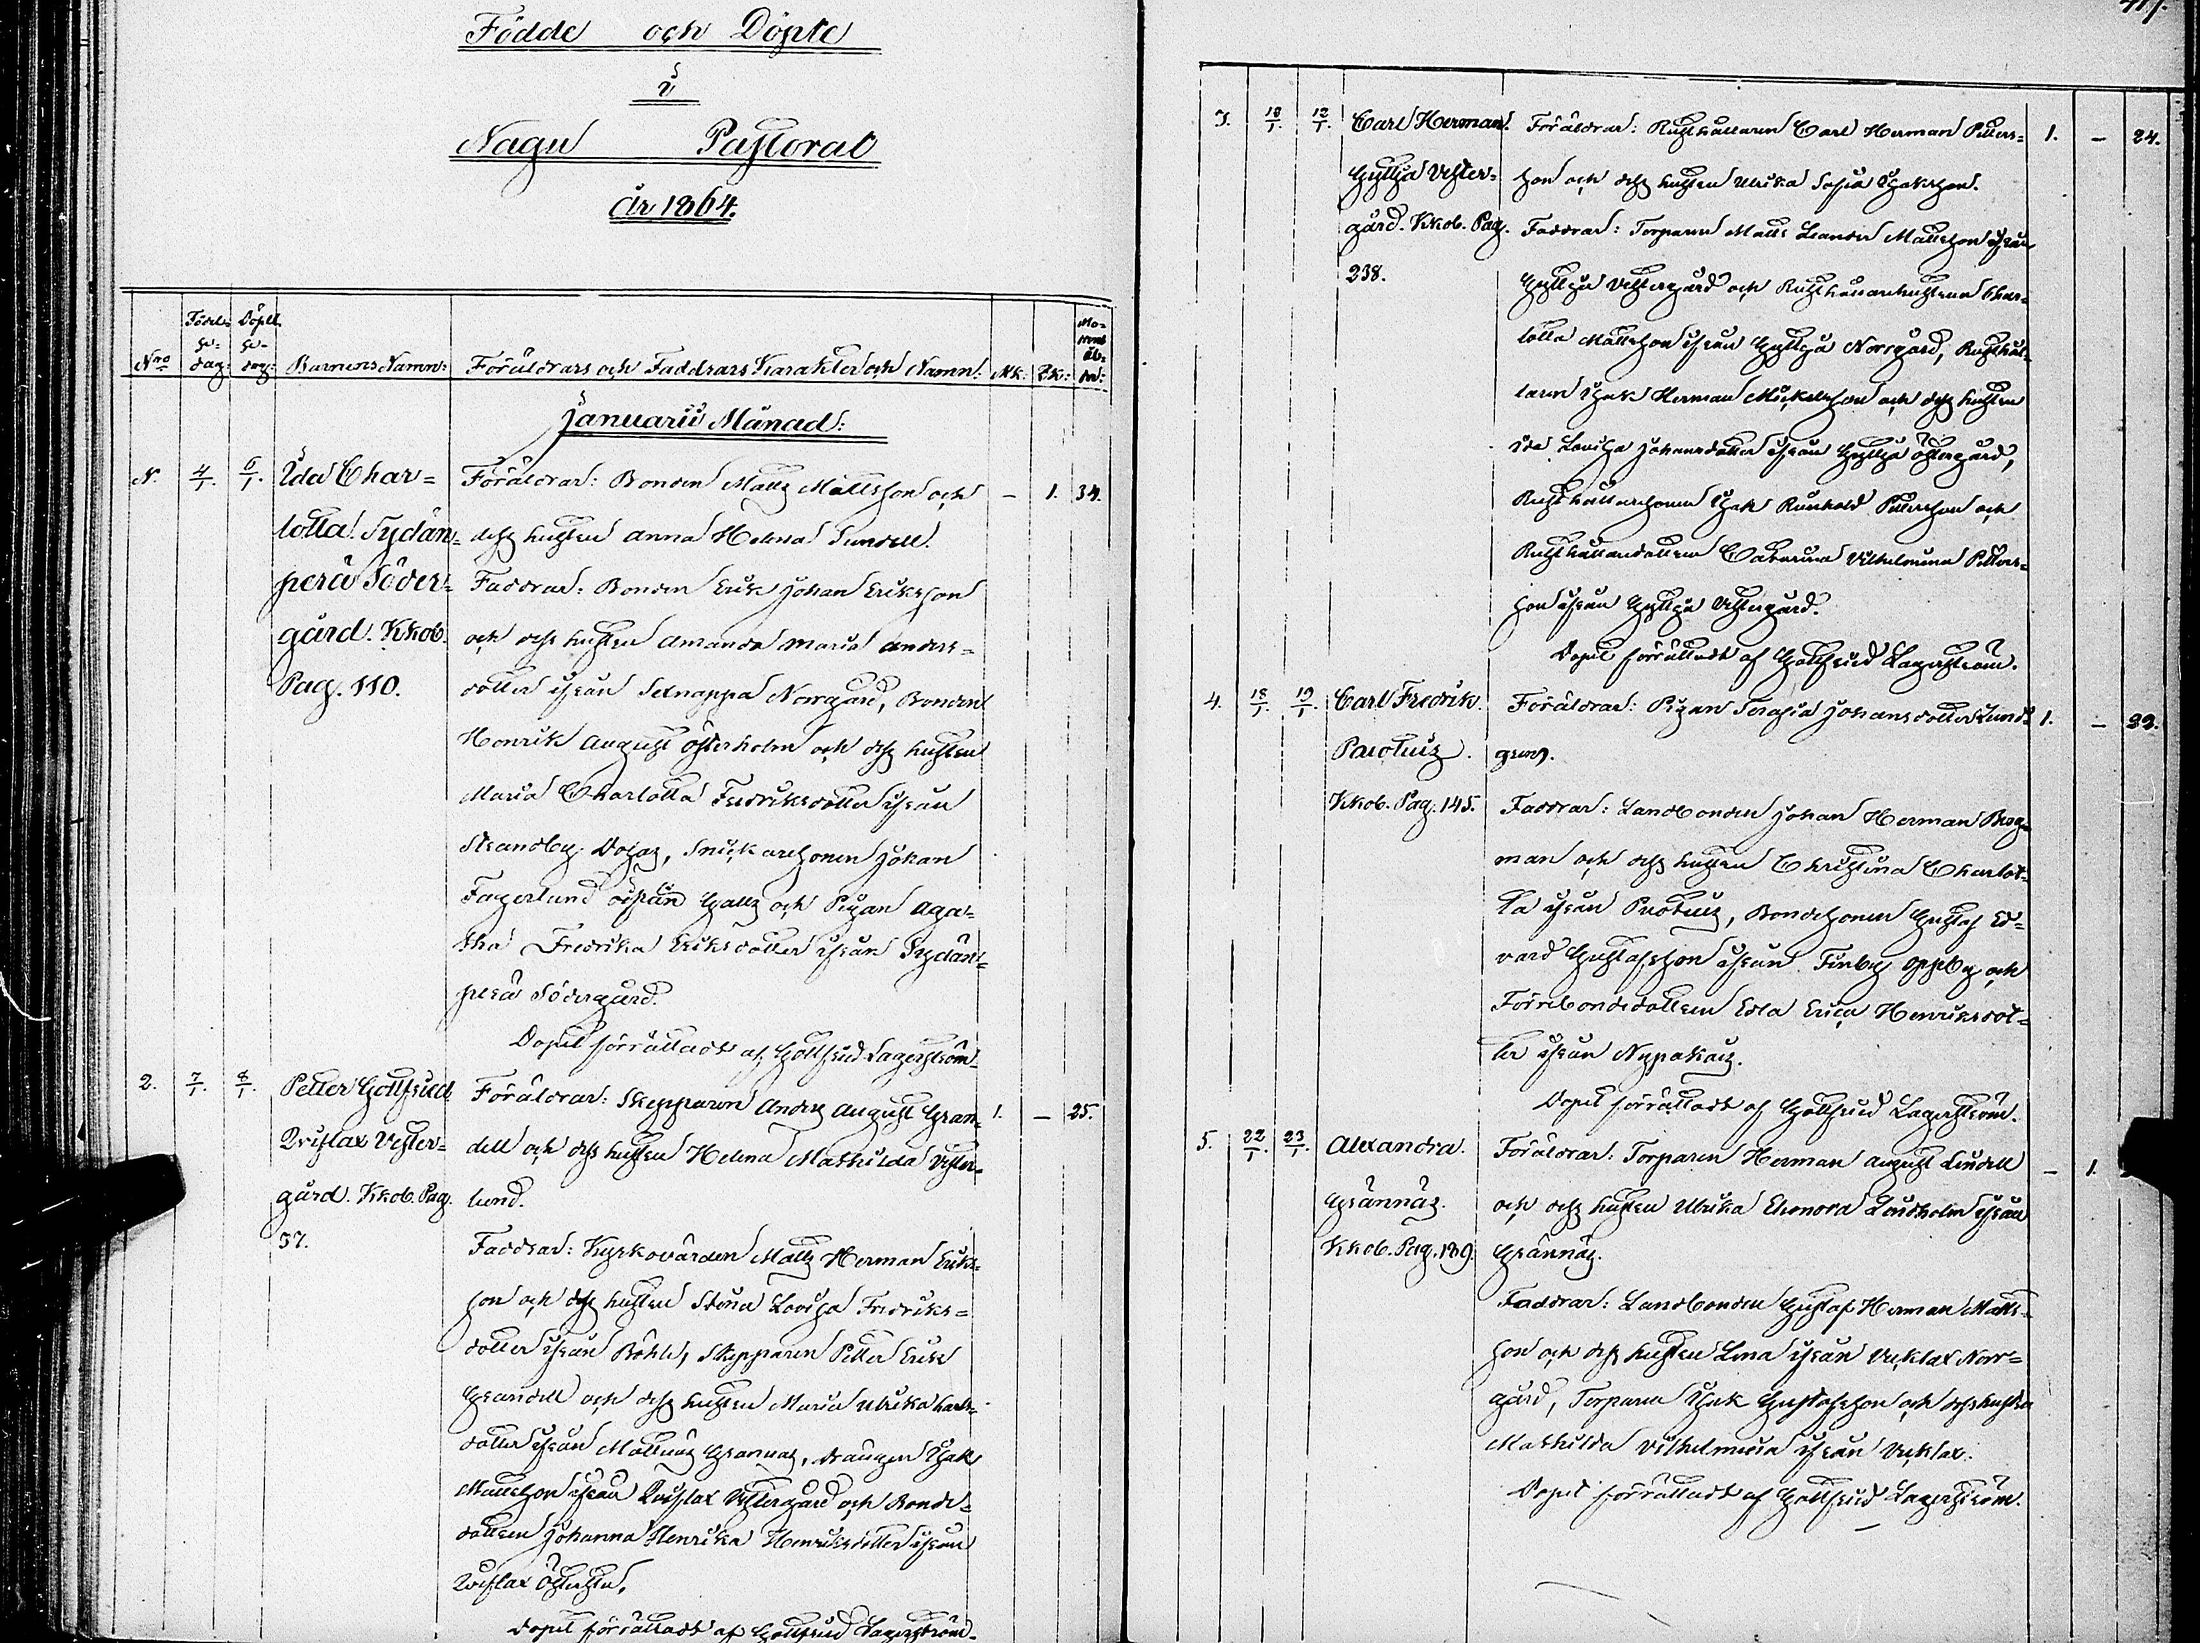 Födde och Döpte
i
Nagu Pastorat
år 1864.
Nro
Födel-
se-
dag:
Döpel-
se-
dag:
Barnens Namn:
Föräldrars och Faddrars Karakter och Namn:
Mk:
Qk:
Mo-
drens
ål-
der:
Januarii Månad:
N. 4/1. 6/1. Ida Char= Föräldrar: Bonden Matts Mattsson och — 1. 34.
lotta. Sydän= dess hustru Anna Helena Sundell.
perä Söder= Faddrar: Bonden Erik Johan Eriksson
gård. Kkob. och dess hustru Amanda Maria Anders=
Pag. 110. dotter ifrån Selnappa Norrgård, Bonden
Henrik August Österholm och dess hustru
Maria Charlotta Fredriksdotter ifrån
Strandby, Snickaresonen Johan
Fagerlund ifrån Galtz och Pigan Aga=
tha Fredrika Eriksdotter ifrån Sydän=
perä Södergård.
Dopet förrättadt af Gottfried Lagerström.
2. 7/1. 8/1. Petter Gottfried. Föräldrar: Skepparen Anders August Gran= 1. — 25.
Qvislax Vester= dell och dess hustru Helena Mathilda Vester=
gård. Kkob. Pag. lund.
37. Faddrar: Kyrkovärden Matts Herman Eriks=
son och dess hustru Stina Lovisa Fredriks=
dotter ifrån Böhle, Skepparen Petter Erik
Grandell och dess hustru Maria Ulrika Carls=
dotter ifrån Mattnäs Grannas, drängen Isak
Mattsson ifrån Qvislax Vestergård och Bonde=
dottren Johanna Henrika Henriksdotter ifrån
Qvislax
Dopet förrättadt af Gottfried Lagerström.
417.
3. 10/1. 12/1. Carl Herman. Föräldrar: Rusthållaren Carl Herman Petters= 1. — 24.
Gyttja Vester= son och dess hustru Ulrika Sofia Isaksson.
gård. Kkob. Pag. Faddrar: Torparen Matts Leander Mattsson ifrån
238. Gyttja Vestergård och Rusthållarehustrun Char=
lotta Mattsson ifrån Gyttja Norrgård, Rusthål=
laren Isak Herman Mickelsson och dess hustru
Ida Lovisa Johansdotter ifrån Gyttja Östergård,
Rusthållaresonen Isak Reinhold Pettersson och
Rusthållaredottren Catarina Vilhelmina Petters=
son ifrån Gyttja Vestergård.
Dopet förrättadt af Gottfried Lagerström.
4. 18/1. 19/1. Carl Fredrik. Föräldrar: Pigan Serafia Johansdotter Lund= 1. — 22.
Parotuis. gren.
Kkob. Pag. 145. Faddrar: Landbonden Johan Herman Berg=
man och dess hustru Christina Charlot=
ta ifrån Parotuis, Bondesonen Gustaf Ed=
vard Gustafsson ifrån Finby Oppby och
Förrebondedottren Edla Erica Henriksdot=
ter ifrån Nypakais.
Dopet förrättadt af Gottfried Lagerström.
5. 22/1. 23/1. Alexandra. Föräldrar: Torparen Herman August Lindell — 1.
Grännäs. och dess hustru Ulrika Elenora Lindholm ifrån
Kkob. Pag. 189. Grännäs.
Faddrar: Landbonden Gustaf Herman Matts=
son och dess hustru Lena ifrån Vicklax Norr=
gård, Torparen Isak Gustafsson och dess hustru
Mathilda Vilhelmina ifrån Vicklax.
Dopet förrättadt af Gottfried Lagerström.